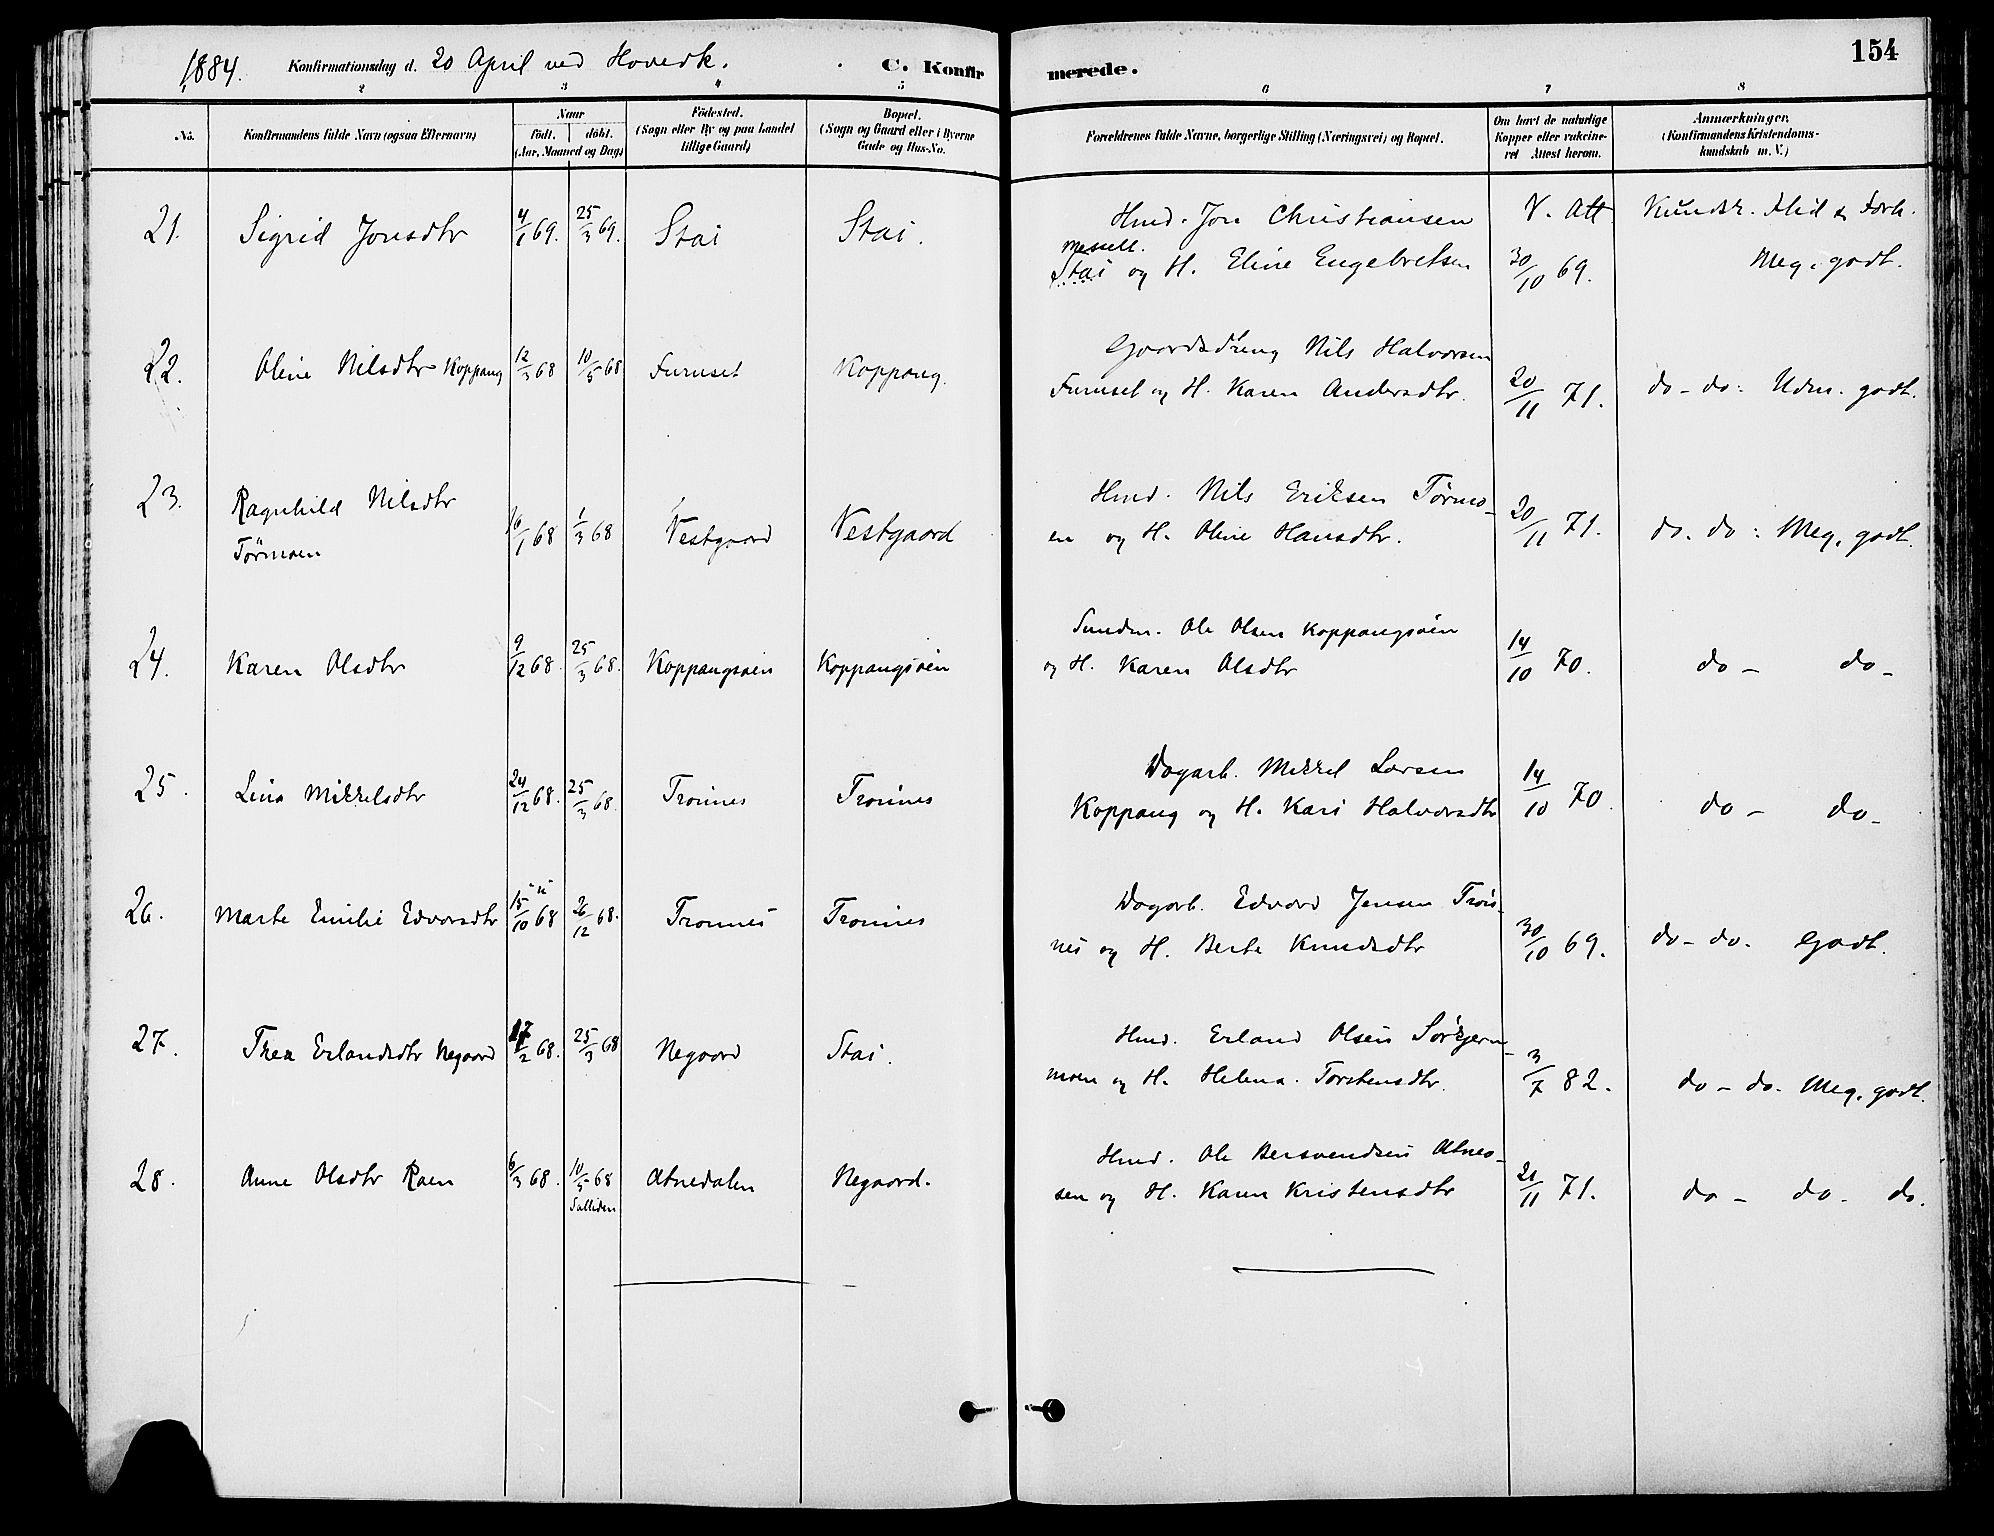 154
1884. Konfirmationsdag d. 20 April ved Hovedk. C. Konfirmerede.
1 2 3 4 5 6 7 8
No. Konfirmandens fulde Navn (ogsaa Efternavn) Naar födt. döbt. (Aar, Maaned og Dag) Födested. (Sogn eller By og paa Landet tillige Gaard) Bopæl. (Sogn og Gaard eller i Byerne Gade og Hus-No. Forældrenes fulde Navne, borgerlige Stilling (Næringsvei) og Bopæl. Om havt de naturlige Kopper eller vakcineret Attest herom. Anmærkninger. (Konfirmandens Kristendomskundskab m. V.)
21. Sigrid Jonsdtr 4/1 69. 25/3 69. Stai Stai. Hmd. Jon Christiansen V. Att Kundsk. Flid & Forh.
Messelt.
Stai og H. Eline Engebretsen 30/10 69. Meg. godt.
22. Oline Nilsdtr Koppang 12/3 68 10/5 68 Furuset Koppang. Gaardsdreng Nils Halvorsen
Furuset og H. Karen Andersdtr. 20/11 71. do - do: Udm. godt.
23. Ragnhild Nilsdtr
Tørmoen 16/1 68 1/3 68 Vestgaard Vestgaard Hmd. Nils Eriksen Tørmo-
en og H. Oline Hansdtr. 20/11 71. do. do: Meg. godt.
24. Karen Olsdtr 9/12 68. 25/3 68. Koppangsøien Koppangsøien Ole Olsen Koppangsøien
og H. Karen Olsdtr 14/10 70. do - do -
25. Lina Mikkelsdtr 24/12 68. 25/3 68. Tronnes Tronnes Dagarb. Mikkel Larsen
Koppang og H. Kari Halvorsdtr 14/10 70. do - do -
26. Marte Emilie Edvarsdtr 15/10 68 26/12 68. Tronnes Tronnes Dagarb. Edvard Jensen Tron-
nes og H. Berte Knudsdtr 30/10 69. do - do. Godt.
27. Thea Erlandsdtr Negaard 17/2 68. 25/3 68 Negaard Stai. Hmd. Erland Olsen Sørkjern-
moen og H. Helena Torstensdtr. 3/7 82. do - do. Meg. godt.
28. Anne Olsdtr Raen 6/3 68. 10/5 68 Atnedalen Negaard. Hmd. Ole Bersvendsen Atneo-
Solliden
sen og H. Karen Kristensdtr 21/11 71. do - do. do.